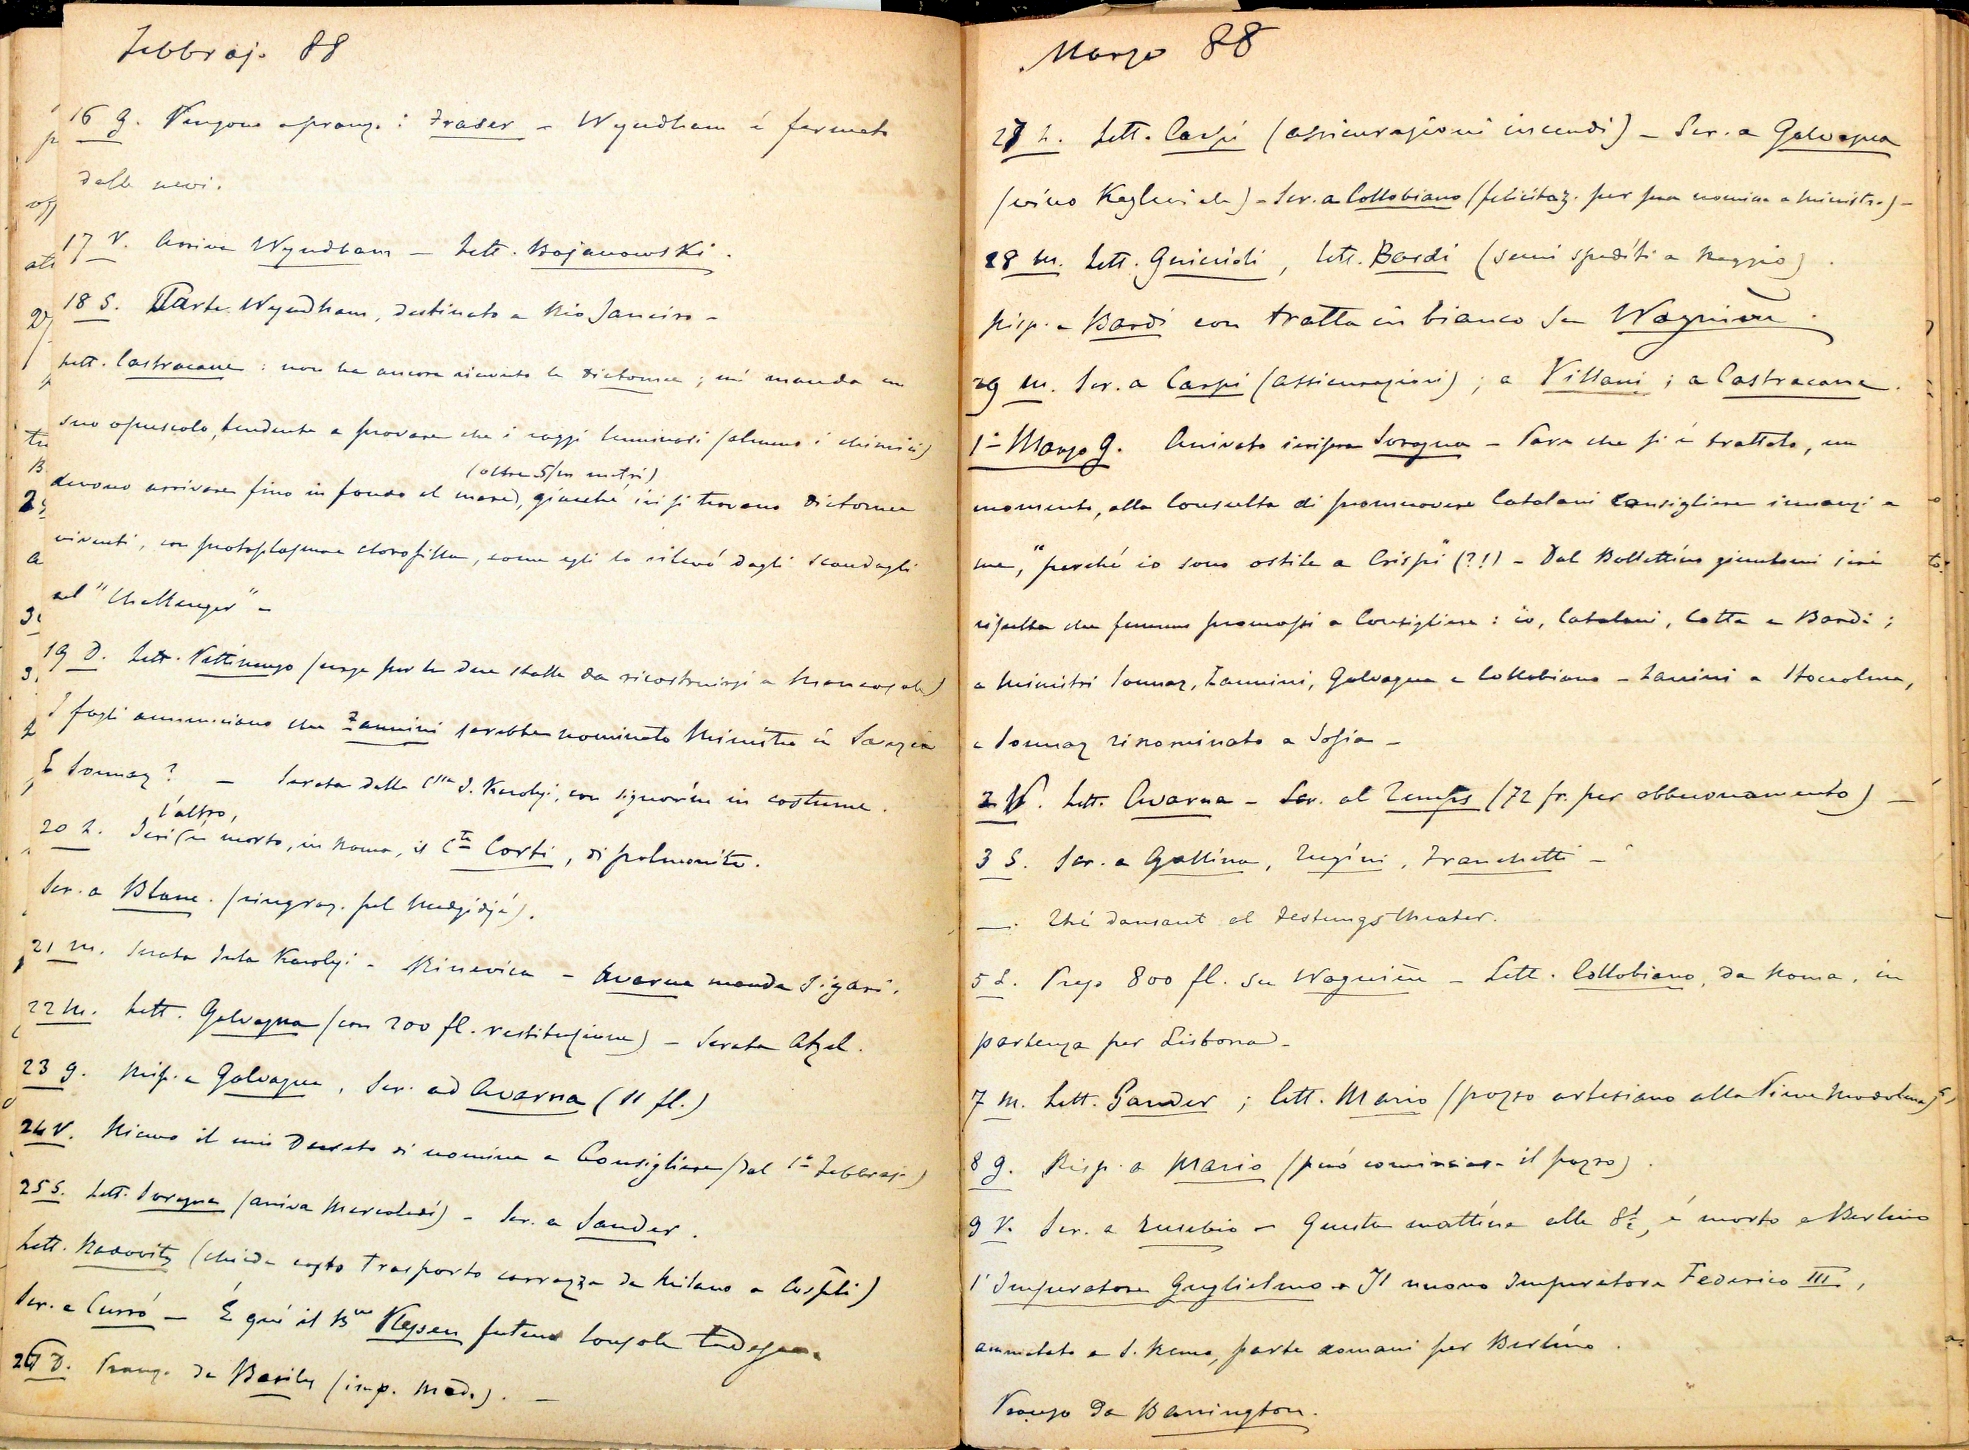 Febbrajo 88
16 G. Vengono a pranzo: Fraser – Wyndham è fermato
dalle nevi.
17 V. Arriva Wyndham – Lett. Bojanowski.
18 S. Parte Wyndham, destinato a Rio Janeiro –
Lett. Castracane: non ha ancora ricevuto le Diatomee; mi manda un
suo opuscolo, tendente a provare che i raggi luminosi (almeno i chimici)
(oltre 5/m metri)
devono arrivare fino in fondo al mare, giacché ivi si trovano Diatomee
viventi, con protoplasma clorofilla, come egli lo rilevò dagli scandagli
del "Challenger" –
19 D. Lett. Vettinengo (urge per le due stalle da ricostruirsi a Moncogale)
I fogli annunciano che Zannini sarebbe nominato Ministro in Svezia
E Sonnaz? – Serata dalla Cssa J. Karolyi, con signorine in costume.
l'altro,
20 L. Ieri è morto, in Roma, il Cte Corti, di polmonite.
Scr. a Blanc. (ringraz. pel Medjidjé).
21 M. Serata Duta Karolyi – Minevica – Avarna manda sigari.
22 M. Lett. Galvagna (con 200 fl. restituzione) – Serata Atzel.
23 G. Risp. a Galvagna. Scr. ad Avarna (11 fl.)
24 V. Ricevo il mio Decreto di nomina a Consigliere (dal 1º Febbrajo)
25 S. Lett. Soragna (arriva Mercoledì) – Scr. a Sander.
Lett. Radovitz (chiede costo trasporto carrozza da Milano a Cospoli)
Scr. a Currò – È quì il Bne Keysen futuro Console tedesco.
26 D. Pranzo da Basily (imp. Mad.). –
Marzo 88
27 L. Lett. Carpi (assicurazioni incendi) – Scr. a Galvagna
(vino Keglevich) – Scr. a Collobiano (felicitaz. per sua nomina a Ministro) –
28 M. Lett. Guicioli, Lett. Bardi (semi spediti a Reggio).
Risp. a Bardi con tratta in bianco su Wagnière.
29 M. Scr. a Carpi (assicurazioni); a Villani; a Castracane.
1º Marzo G. Arrivato iersera Soragna – Pare che si è trattato, un
momento, alla Consulta di promuovere Catalani Consigliere innanzi a
me, "perché io sono ostile a Crispi" (?!) – Dal Bollettino giuntomi ieri
risulta che fummo promossi a Consigliere: io, Catalani, Cotta e Bardi;
a Ministri Sonnaz, Zannini, Galvagna e Collobiano – Zanini a Stoccolma,
e Sonnaz rinominato a Sofia –
2 V. Lett. Avarna – Scr. al Temps (72 fr. per abbuonamento) –
3 S. Scr. a Gallina, Tugini, Franchetti –
—. Thé dansant al Festungstheater.
5 L. Preso 800 fl. su Wagnière – Lett. Collobiano, da Roma, in
partenza per Lisbona –
7 M. Lett. Sander; lett. Mario (pozzo artesiano alla Pieve Modolena),
8 G. Risp. a Mario (può cominciare il pozzo).
9 V. Scr. a Eusebio – Questa mattina alle 8½, è morto a Berlino
l'Imperatore Guglielmo – Il nuovo Imperatore Federico III,
ammalato a S. Remo, parte domani per Berlino.
Pranzo da Barrington.